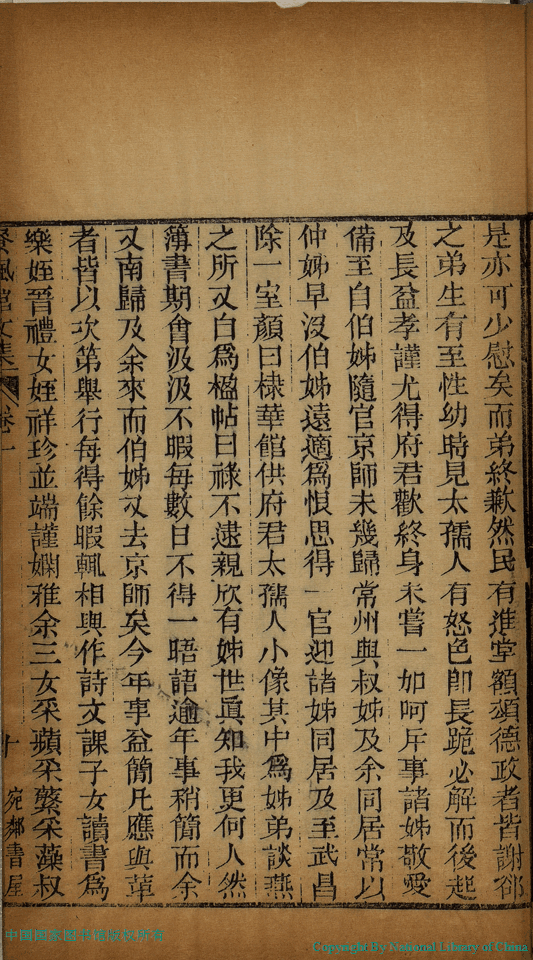 是亦可少慰矣而弟終歉然民有進堂額頌德政者皆謝郤
之弟生有至性幼時見太孺人有怒色卽長跪必解而後起
及長益孝謹尤得府君歡終身未嘗一加呵斥事諸姊敬愛
備至自伯姊隨官京師未幾歸常州與叔姊及余同居常以
仲姊早沒伯姊遠適爲恨思得一官迎諸姊同居及至武昌
除一室顏曰棣華館供府君太孺人小像其中爲姊弟談燕
之所又自爲楹帖曰祿不逮親欣有姊世眞知我更何人然
簿書期會汲汲不暇每數日不得一晤語逾年事稍簡而余
又南歸及余來而伯姊又去京師矣今年事益簡凡應與革
者皆以次第舉行每得餘暇輒相與作詩文課子女讀書爲
樂姪晉禮女姪祥珍並端謹嫻雅余三女采蘋采蘩采藻叔
餐楓館文集 卷一 十 宛鄰書屋
中国国家图书馆
Copyright By National Library of China